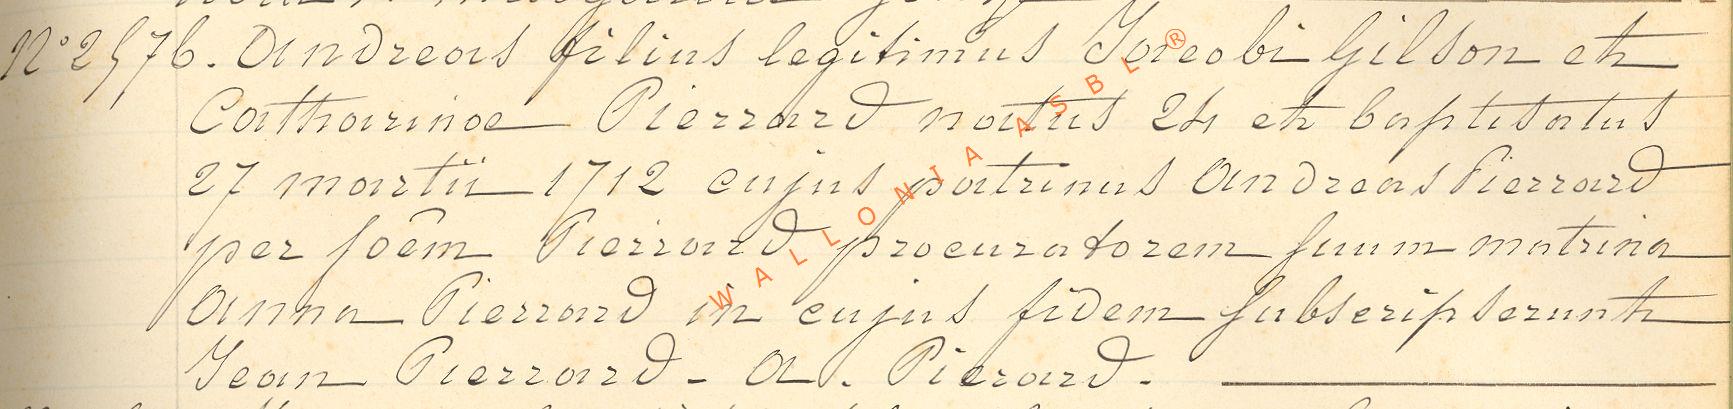 N° 2576. Andreas filius legitimus Jacobi Gilson et
Catharinae Pierrard natus 24 et baptisatus
27 martii 1712 cujus patrinus Andreas Pierrard
per Joêm Pierrard procuratorem suum matrina
Anna Pierrard in cujus fidem subscripserunt
Jean Pierrard - A. Pierard.
WALLONIA ASBL ®